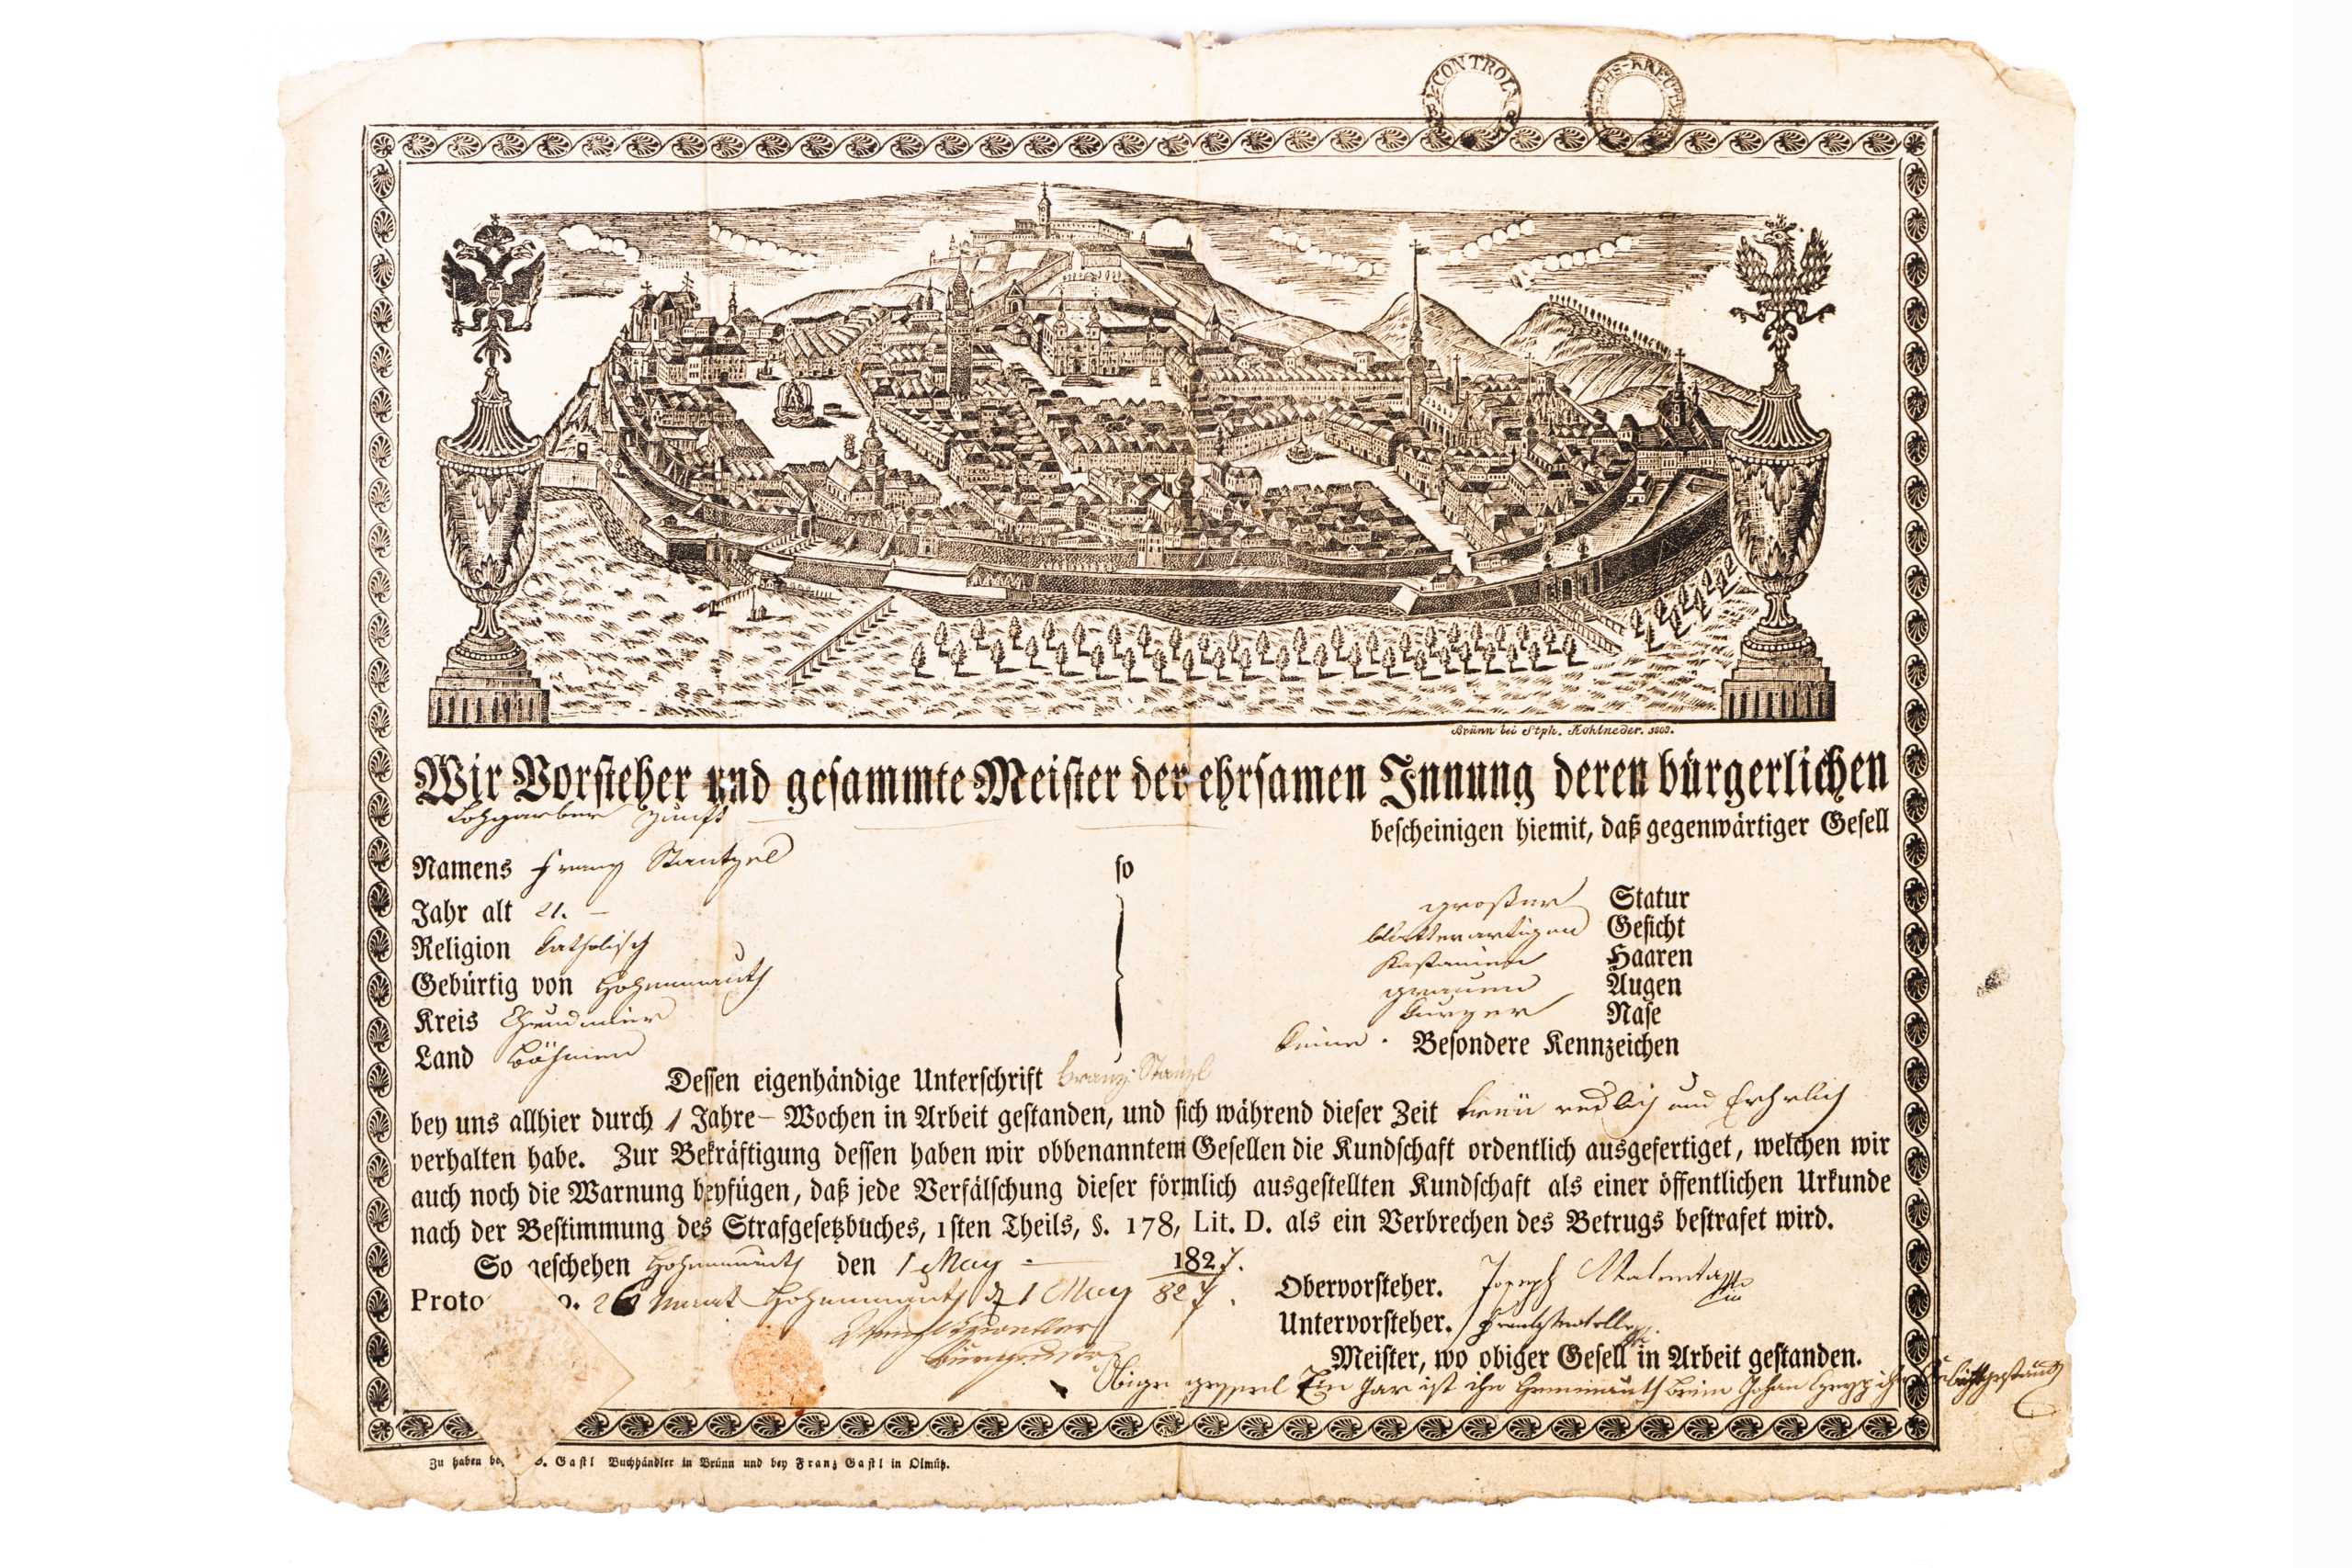 CONTROL
SECHS-KREUTZER
Brünn bei Stph. Kohlneder. 1803.
Wir Vorsteher und gesammte Meister der ehrsamen Innung deren bürgerlichen
Lohgarber Zunft
bescheinigen hiemit, daß gegenwärtiger Gesell
Namens Franz Stantzel
so
Jahr alt 21. –
großer Statur
Religion Catholisch
blatterartigen Gesicht
Kastanien Haaren
Gebürtig von Hohenmauth
grauen Augen
Kreis Chrudimer
kurzer Nase
Land Böhmen
keine. Besondere Kennzeichen
Dessen eigenhändige Unterschrift Franz Stanzl
bey uns allhier durch 1 Jahre – Wochen in Arbeit gestanden, und sich während dieser Zeit treü redlich und Ehrlich
verhalten habe. Zur Bekräftigung dessen haben wir obbenanntem Gesellen die Kundschaft ordentlich ausgefertiget, welchen wir
auch noch die Warnung beyfügen, daß jede Verfälschung dieser förmlich ausgestellten Kundschaft als einer öffentlichen Urkunde
nach der Bestimmung des Strafgesetzbuches, 1sten Theils, §. 178, Lit. D. als ein Verbrechen des Betrugs bestrafet wird.
So geschehen Hohenmauth den 1 May 1827.
Proto o. Hohenmauth d 1 May 827.
Obervorsteher. Joseph
Untervorsteher.
Meister, wo obiger Gesell in Arbeit gestanden.
Obiger gesell Ein Jar ist Johan
Zu haben be Gastl Buchhändler in Brünn und bey Franz Gastl in Olmütz.